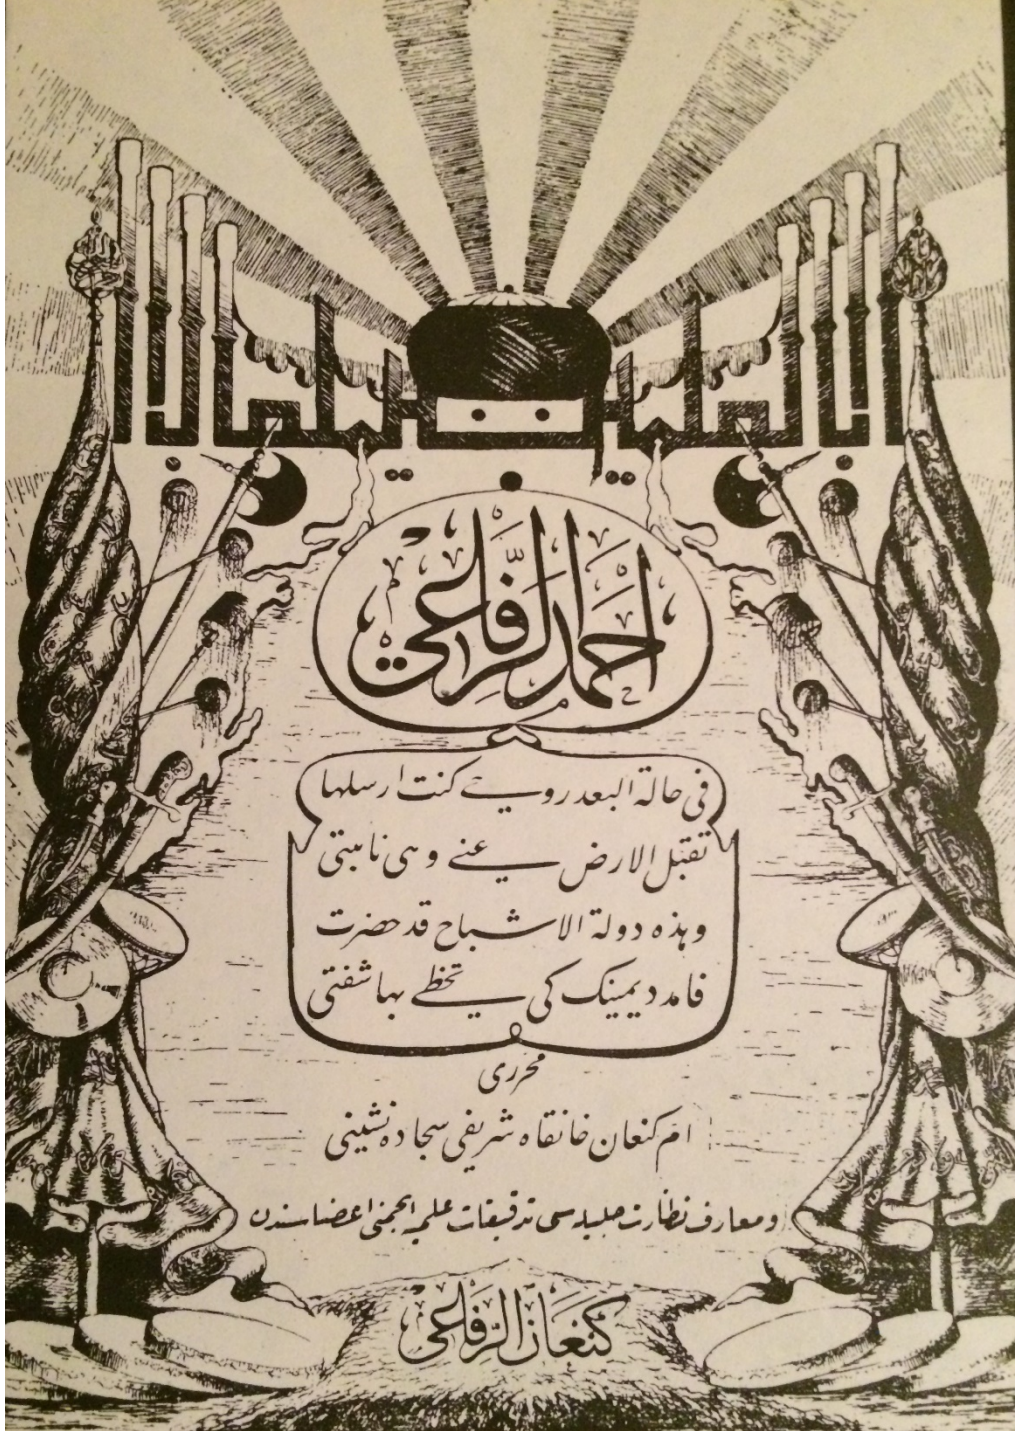 احمد الرفاعي
في حالة البعد روحي كنت ارسلها
تقبل الارض عني وهي نائبتي
وهذه دولة الاشباح قد حضرت
فامدد يمينك كي تحظى بها شفتي
محررى
ام كنعان خانقاه شريفى سجاده نشينى
و معارف نظارت جليله سى تدقيقات علميه انجمنى اعضاسندن
كنعان الرفاعي